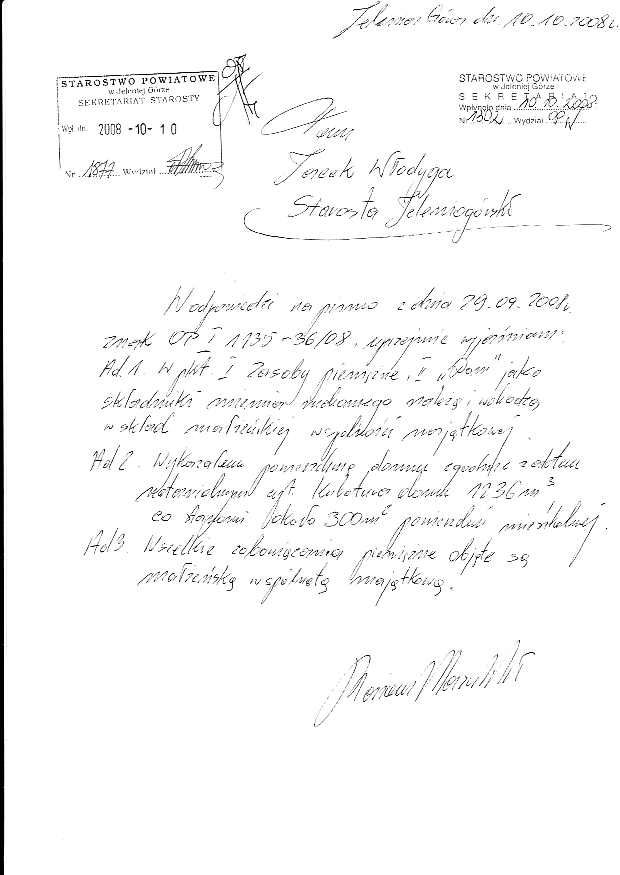 Jelenia Góra dn. 10.10.2008r.
STAROSTWO POWIATOWE
w Jeleniej Górze
SEKRETARIAT STAROSTY
Wpł. dn. 2008 -10- 10
Nr 1877 Wydział
STAROSTWO POWIATOWE
w Jeleniej Górze
SEKRETARIAT
Wpłynęło dnia 10.10.2008
Nr 1302 Wydział OP
Pan
Jacek Włodyga
Starosta Jeleniogórski
W odpowiedzi na pismo z dnia 29.09.2008r.
znak OP I 1135-36/08. uprzejmie wyjaśniam:
Ad.1. W pkt. I Zasoby pieniężne, II „Dom" jako
składniki mienia należą i wchodzą
w skład małżeńskiej wspólności majątkowej.
Ad 2. Wykazałem powierzchnię domu zgodnie z aktem
notarialnym cyt. Kubatura domu 1236 m³
co stanowi około 300m² powierzchni mieszkalnej.
Ad 3. Wszelkie zobowiązania pieniężne objęte są
małżeńską wspólnotą majątkową.